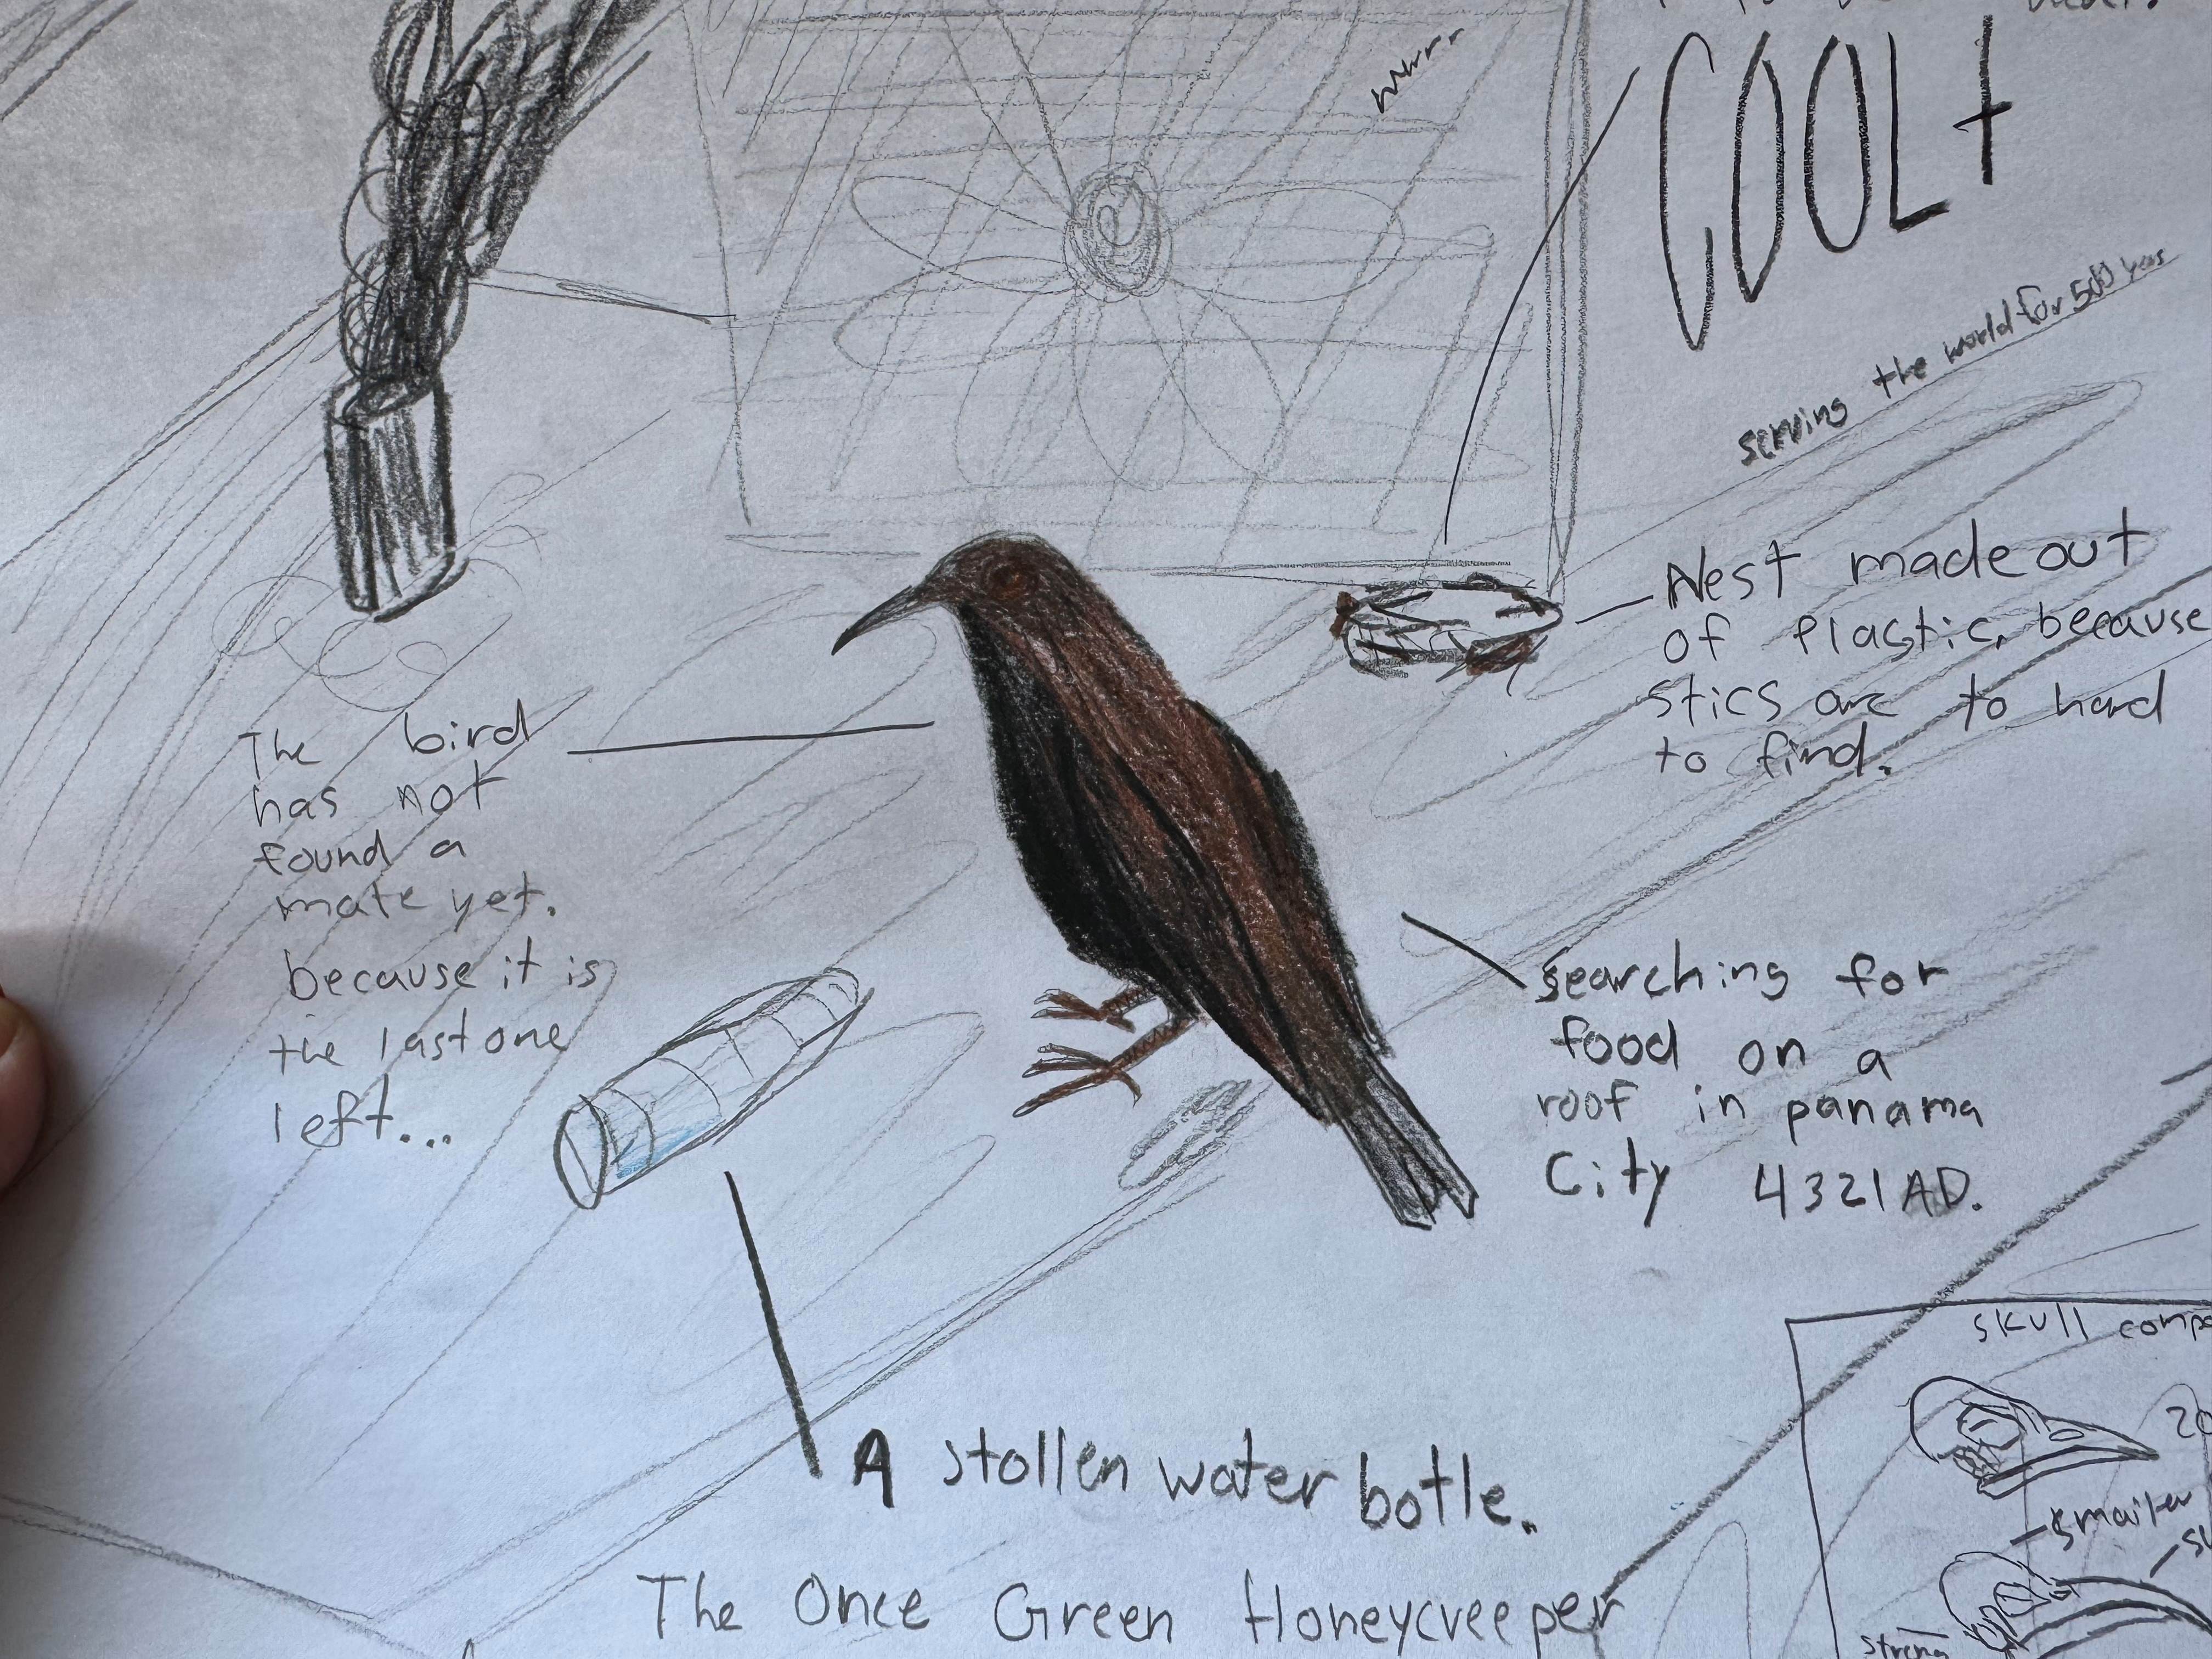 wrrr
COOL+
serving the world for 500 yers
Nest made out
of plastic, because
stics are to hard
to find.
The bird
has not
found a
mate yet.
because it is
the last one
left...
searching for
food on a
roof in panama
City 4321 AD.
A stollen water botle.
The Once Green Honeycreeper
skull
smaller